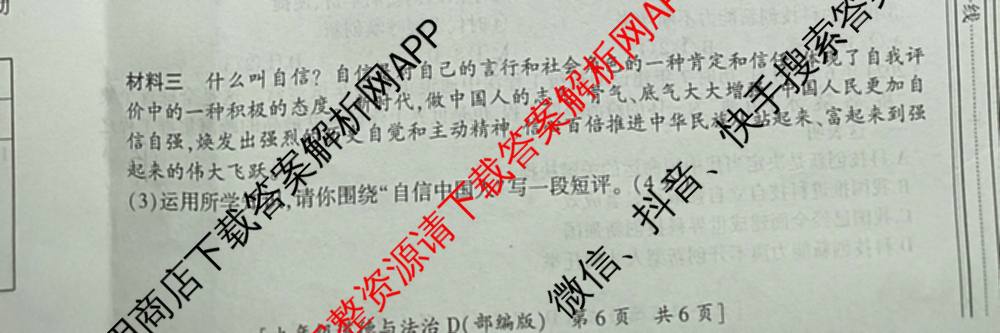 线
材料三 什么叫自信？自信 对自己的言行和社会 色的一种肯定和信任 体现了自我评
价中的一种积极的态度 新时代，做中国人的志 骨气、底气大大增 中国人民更加自
信自强，焕发出强烈的 史自觉和主动精神，信 百倍推进中华民族 站起来、富起来到强
起来的伟大飞跃
(3)运用所学 ，请你围绕“自信中国 写一段短评。(4
德与法治D(部编版) 第6页 共6页]
用商店下载答案解析网APP
整资源请下载答案解析网AP
微信、抖音、快手搜索答案